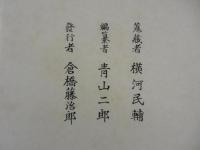 蒐蔵者 横河民輔
編纂者 青山二郎
發行者 倉橋藤治郎